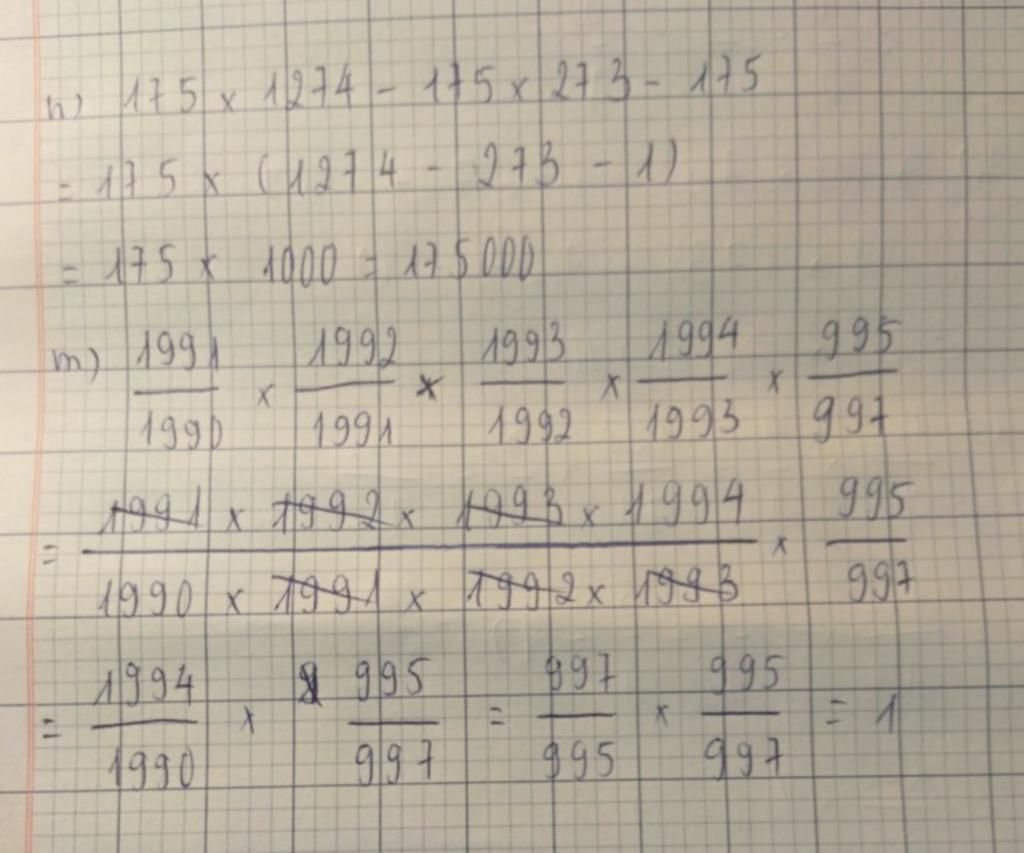 n) 175 × 1274 - 175 × 273 - 175
= 175 × (1274 - 273 - 1)
= 175 × 1000 = 175000
m) 1991/1990 × 1992/1991 × 1993/1992 × 1994/1993 × 995/997
= (1991 × 1992 × 1993 × 1994)/(1990 × 1991 × 1992 × 1993) × 995/997
= 1994/1990 × 995/997 = 997/995 × 995/997 = 1